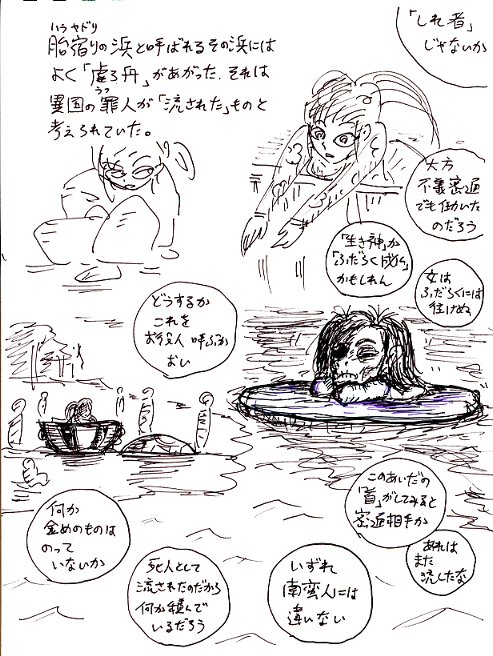 ハラ ヤドリ
胎宿りの浜と呼ばれるその浜には
よく「虚ろ舟」があがった. それは
うつ
異国の罪人が「流された」ものと
考えられていた。
「しれ者」
じゃないか
大方
不義密通
でも働いた
のだろう
「生き神」か
「ふだらく成仏」
かもしれん
女は
ふだらくには
往けぬ
どうするか
これを
お役人 呼ぶか
おい
このあいだの
「首」がしてみると
密通相手か
あれは
また
流したな
何か
金めのものは
のって
いないか
死人として
流されたのだから
何か積んで
いるだろう
いずれ
南蛮人には
違いない